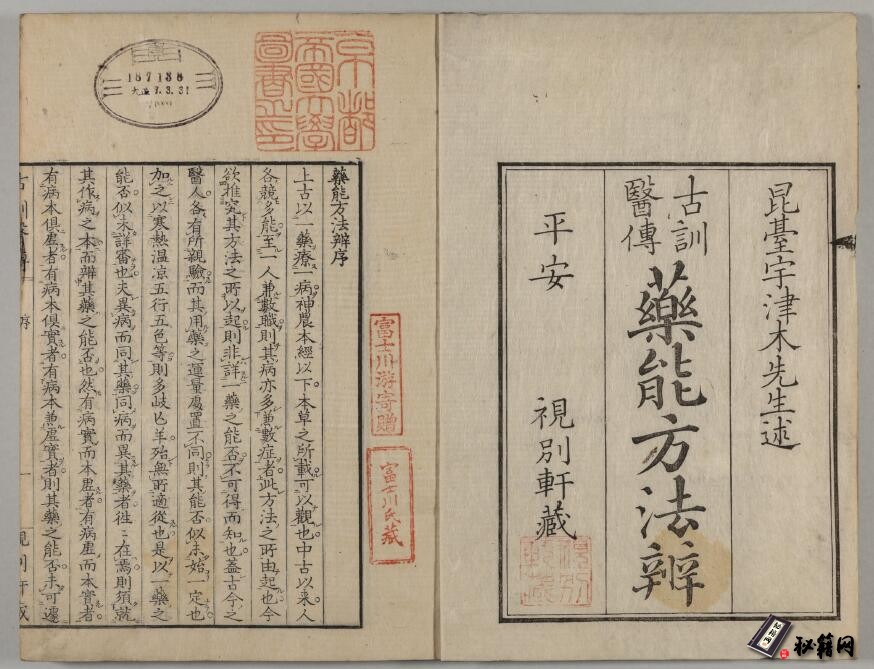 昆臺宇津木先生述
古訓
醫傳
藥能方法辨
平安
視別軒藏
視別
軒藏
京都
帝國大學
圖書之印
187138
大正7.3.31
富士川游寄贈
富士川氏藏
藥能方法辨序
上古以一藥療一病神農本經以下本草之所載可以觀也中古以來人
各競多能至一人兼數職則其病亦多兼數症者此方法之所由起也今
欲推究其方法之所以起則非詳一藥之能否不可得而知也蓋古今之
醫人各有所親驗而其用藥之運量處置不同則其能否似未始一定也
加之以寒熱温凉五行五色等則多岐亡羊殆無所適從也是以一藥之
能否似未詳審也夫異病而同其藥同病而異其藥者徃〻在焉則須就
其作病之本而辨其藥之能否也然有病實而本虛者有病虛而本實者
有病本俱虛者有病本俱實者有病本兼虛實者則其藥之能否未可遽
秘籍网